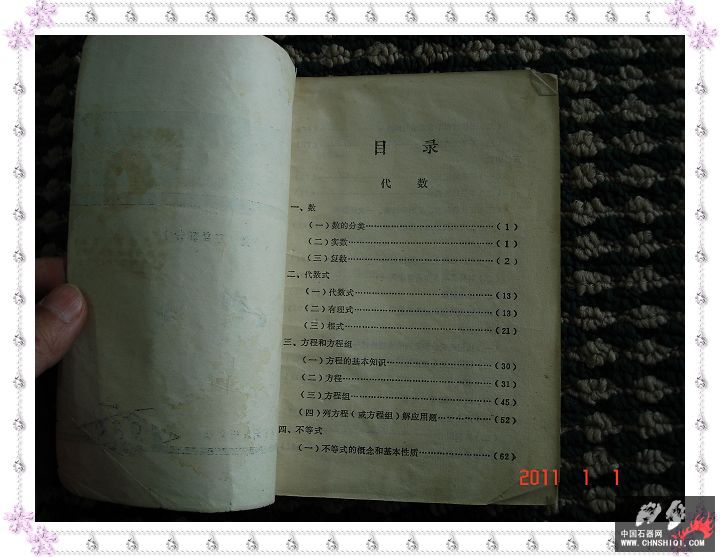 目 录
代 数
一、数
（一）数的分类……………………………（1）
（二）实数…………………………………（1）
（三）复数…………………………………（2）
二、代数式
（一）代数式………………………………（13）
（二）有理式………………………………（13）
（三）根式…………………………………（21）
三、方程和方程组
（一）方程的基本知识……………………（30）
（二）方程…………………………………（31）
（三）方程组………………………………（45）
（四）列方程（或方程组）解应用题………（52）
四、不等式
（一）不等式的概念和基本性质…………（62）
2011 1 1
中国石器网
WWW.CHNSHIQI.COM